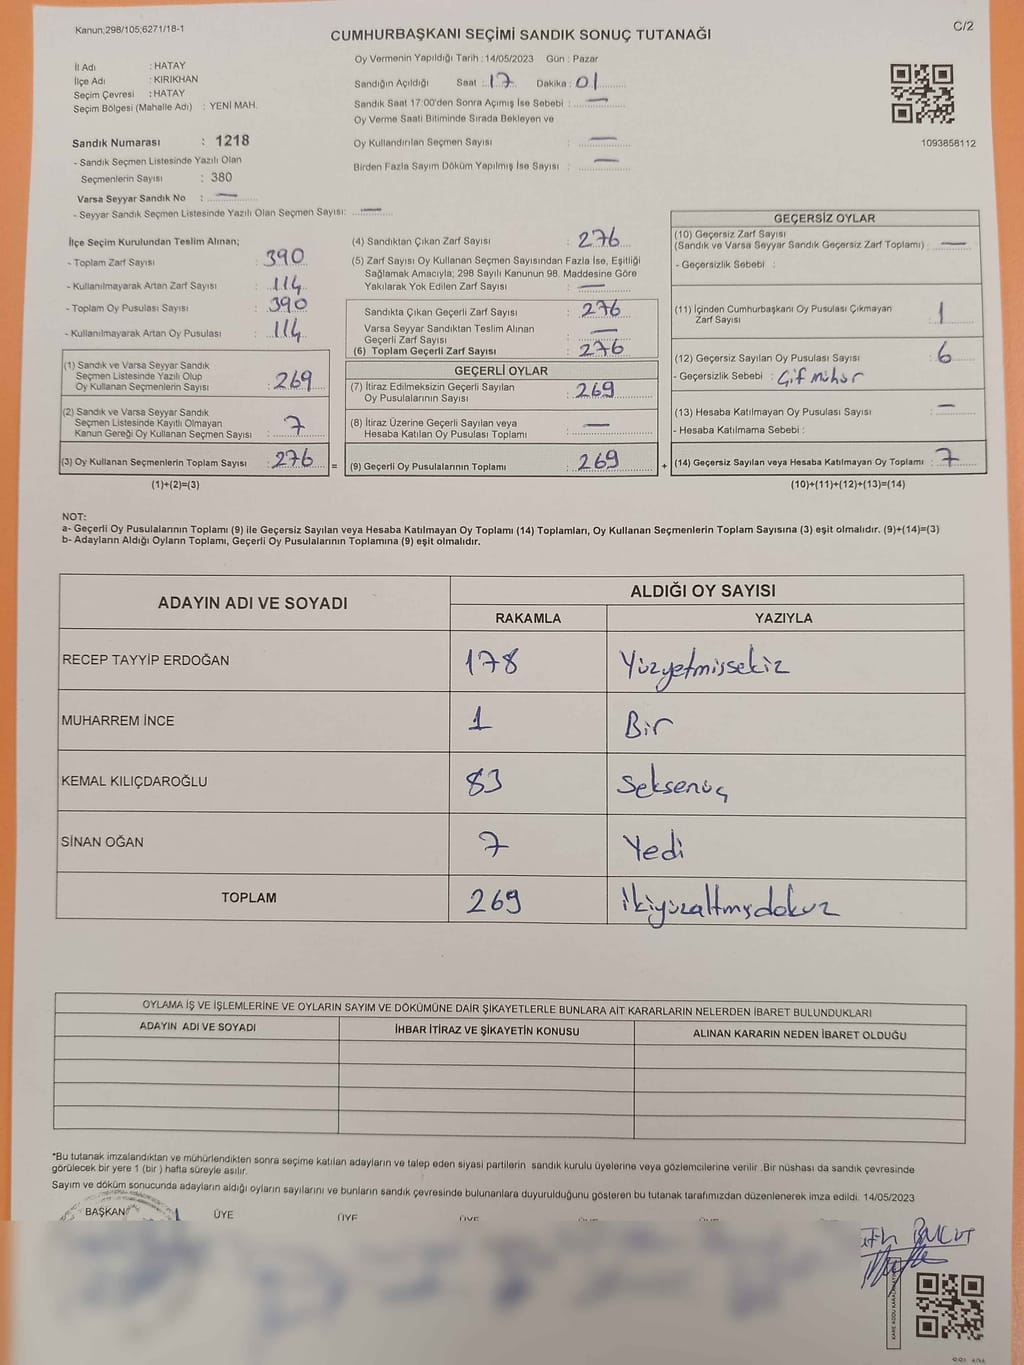 Kanun;298/105;6271/18-1
C/2
CUMHURBAŞKANI SEÇİMİ SANDIK SONUÇ TUTANAĞI
Oy Vermenin Yapıldığı Tarih : 14/05/2023 Gün : Pazar
İl Adı : HATAY
İlçe Adı : KIRIKHAN
Seçim Çevresi : HATAY
Seçim Bölgesi (Mahalle Adı) : YENİ MAH.
Sandığın Açıldığı Saat : 17 Dakika : 01
Sandık Saat 17:00'den Sonra Açımış İse Sebebi : —
Oy Verme Saati Bitiminde Sırada Bekleyen ve
Oy Kullandırılan Seçmen Sayısı : —
Birden Fazla Sayım Döküm Yapılmış İse Sayısı : —
1093858112
Sandık Numarası : 1218
- Sandık Seçmen Listesinde Yazılı Olan
Seçmenlerin Sayısı : 380
Varsa Seyyar Sandık No : —
- Seyyar Sandık Seçmen Listesinde Yazılı Olan Seçmen Sayısı: —
İlçe Seçim Kurulundan Teslim Alınan;
- Toplam Zarf Sayısı : 390
- Kullanılmayarak Artan Zarf Sayısı : 114
- Toplam Oy Pusulası Sayısı : 390
- Kullanılmayarak Artan Oy Pusulası : 114
(1) Sandık ve Varsa Seyyar Sandık
Seçmen Listesinde Yazılı Olup
Oy Kullanan Seçmenlerin Sayısı : 269
(2) Sandık ve Varsa Seyyar Sandık
Seçmen Listesinde Kayıtlı Olmayan
Kanun Gereği Oy Kullanan Seçmen Sayısı : 7
(3) Oy Kullanan Seçmenlerin Toplam Sayısı : 276
(1)+(2)=(3)
(4) Sandıktan Çıkan Zarf Sayısı : 276
(5) Zarf Sayısı Oy Kullanan Seçmen Sayısından Fazla İse, Eşitliği
Sağlamak Amacıyla; 298 Sayılı Kanunun 98. Maddesine Göre
Yakılarak Yok Edilen Zarf Sayısı : —
Sandıkta Çıkan Geçerli Zarf Sayısı : 276
Varsa Seyyar Sandıktan Teslim Alınan
Geçerli Zarf Sayısı : —
(6) Toplam Geçerli Zarf Sayısı : 276
GEÇERLİ OYLAR
(7) İtiraz Edilmeksizin Geçerli Sayılan
Oy Pusulalarının Sayısı : 269
(8) İtiraz Üzerine Geçerli Sayılan veya
Hesaba Katılan Oy Pusulası Toplamı : —
= (9) Geçerli Oy Pusulalarının Toplamı : 269 +
GEÇERSİZ OYLAR
(10) Geçersiz Zarf Sayısı
(Sandık ve Varsa Seyyar Sandık Geçersiz Zarf Toplamı) : —
- Geçersizlik Sebebi :
(11) İçinden Cumhurbaşkanı Oy Pusulası Çıkmayan
Zarf Sayısı : 1
(12) Geçersiz Sayılan Oy Pusulası Sayısı : 6
- Geçersizlik Sebebi : Çif mühür
(13) Hesaba Katılmayan Oy Pusulası Sayısı : —
- Hesaba Katılmama Sebebi :
(14) Geçersiz Sayılan veya Hesaba Katılmayan Oy Toplamı : 7
(10)+(11)+(12)+(13)=(14)
NOT:
a- Geçerli Oy Pusulalarının Toplamı (9) ile Geçersiz Sayılan veya Hesaba Katılmayan Oy Toplamı (14) Toplamları, Oy Kullanan Seçmenlerin Toplam Sayısına (3) eşit olmalıdır. (9)+(14)=(3)
b- Adayların Aldığı Oyların Toplamı, Geçerli Oy Pusulalarının Toplamına (9) eşit olmalıdır.
ADAYIN ADI VE SOYADI
ALDIĞI OY SAYISI
RAKAMLA YAZIYLA
RECEP TAYYİP ERDOĞAN 178 Yüzyetmişsekiz
MUHARREM İNCE 1 Bir
KEMAL KILIÇDAROĞLU 83 Seksenüç
SİNAN OĞAN 7 Yedi
TOPLAM 269 ikiyüzaltmışdokuz
OYLAMA İŞ VE İŞLEMLERİNE VE OYLARIN SAYIM VE DÖKÜMÜNE DAİR ŞİKAYETLERLE BUNLARA AİT KARARLARIN NELERDEN İBARET BULUNDUKLARI
ADAYIN ADI VE SOYADI İHBAR İTİRAZ VE ŞİKAYETİN KONUSU ALINAN KARARIN NEDEN İBARET OLDUĞU
*Bu tutanak imzalandıktan ve mühürlendikten sonra seçime katılan adayların ve talep eden siyasi partilerin sandık kurulu üyelerine veya gözlemcilerine verilir .Bir nüshası da sandık çevresinde
görülecek bir yere 1 (bir ) hafta süreyle asılır.
Sayım ve döküm sonucunda adayların aldığı oyların sayılarını ve bunların sandık çevresinde bulunanlara duyurulduğunu gösteren bu tutanak tarafımızdan düzenlenerek imza edildi. 14/05/2023
BAŞKAN ÜYE ÜYE ÜYE